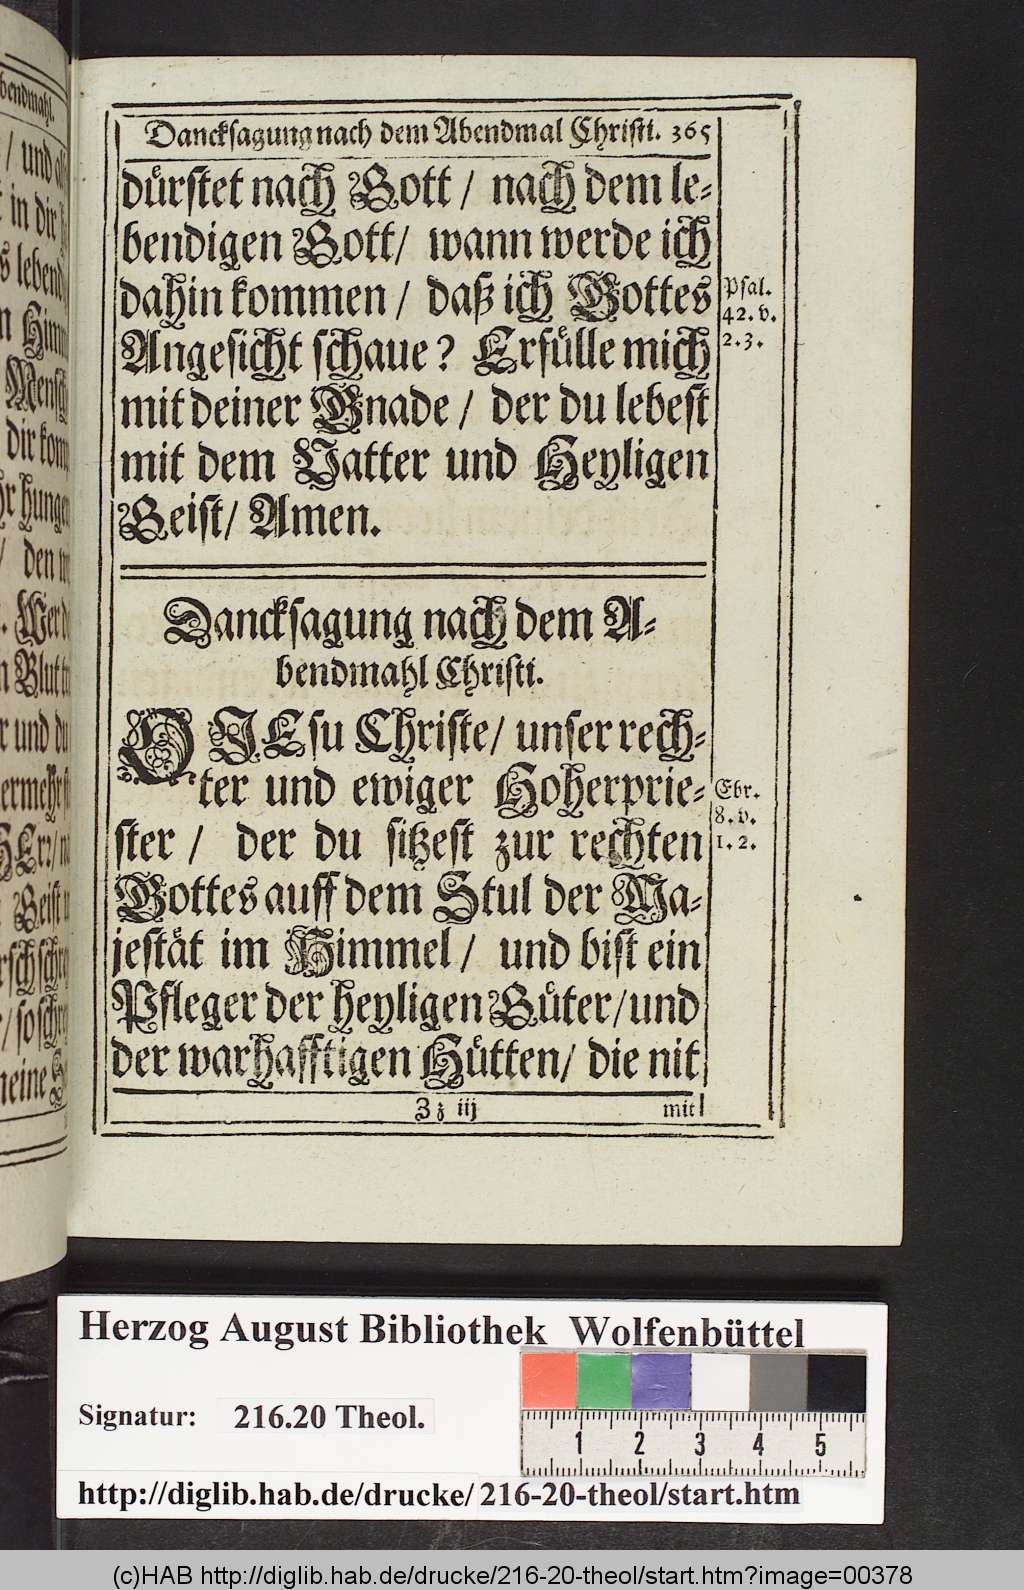 Dancksagung nach dem Abendmal Christi. 365
dürstet nach Gott / nach dem le-
bendigen Gott / wann werde ich
dahin kommen / daß ich Gottes
Angesicht schaue? Erfülle mich
mit deiner Gnade / der du lebest
mit dem Vatter und Heyligen
Geist / Amen.
Psal.
42. v.
2. 3.
Dancksagung nach dem A-
bendmahl Christi.
O JEsu Christe / unser rech-
ter und ewiger Hoherprie-
ster / der du sitzest zur rechten
Gottes auff dem Stul der Ma-
jestät im Himmel / und bist ein
Pfleger der heyligen Güter / und
der warhafftigen Hütten / die nit
Ebr.
8. v.
1. 2.
Zz iij
mit
bendmahl.
/ und
in dir
lebend
Mensch
dir kom
hungen
/ den
. Wer
Blut
und du
ermehr
HErr /
Geist
schrey
/ so schrey
meine
Herzog August Bibliothek Wolfenbüttel
Signatur: 216.20 Theol.
1 2 3 4 5
http://diglib.hab.de/drucke/216-20-theol/start.htm
(c)HAB http://diglib.hab.de/drucke/216-20-theol/start.htm?image=00378